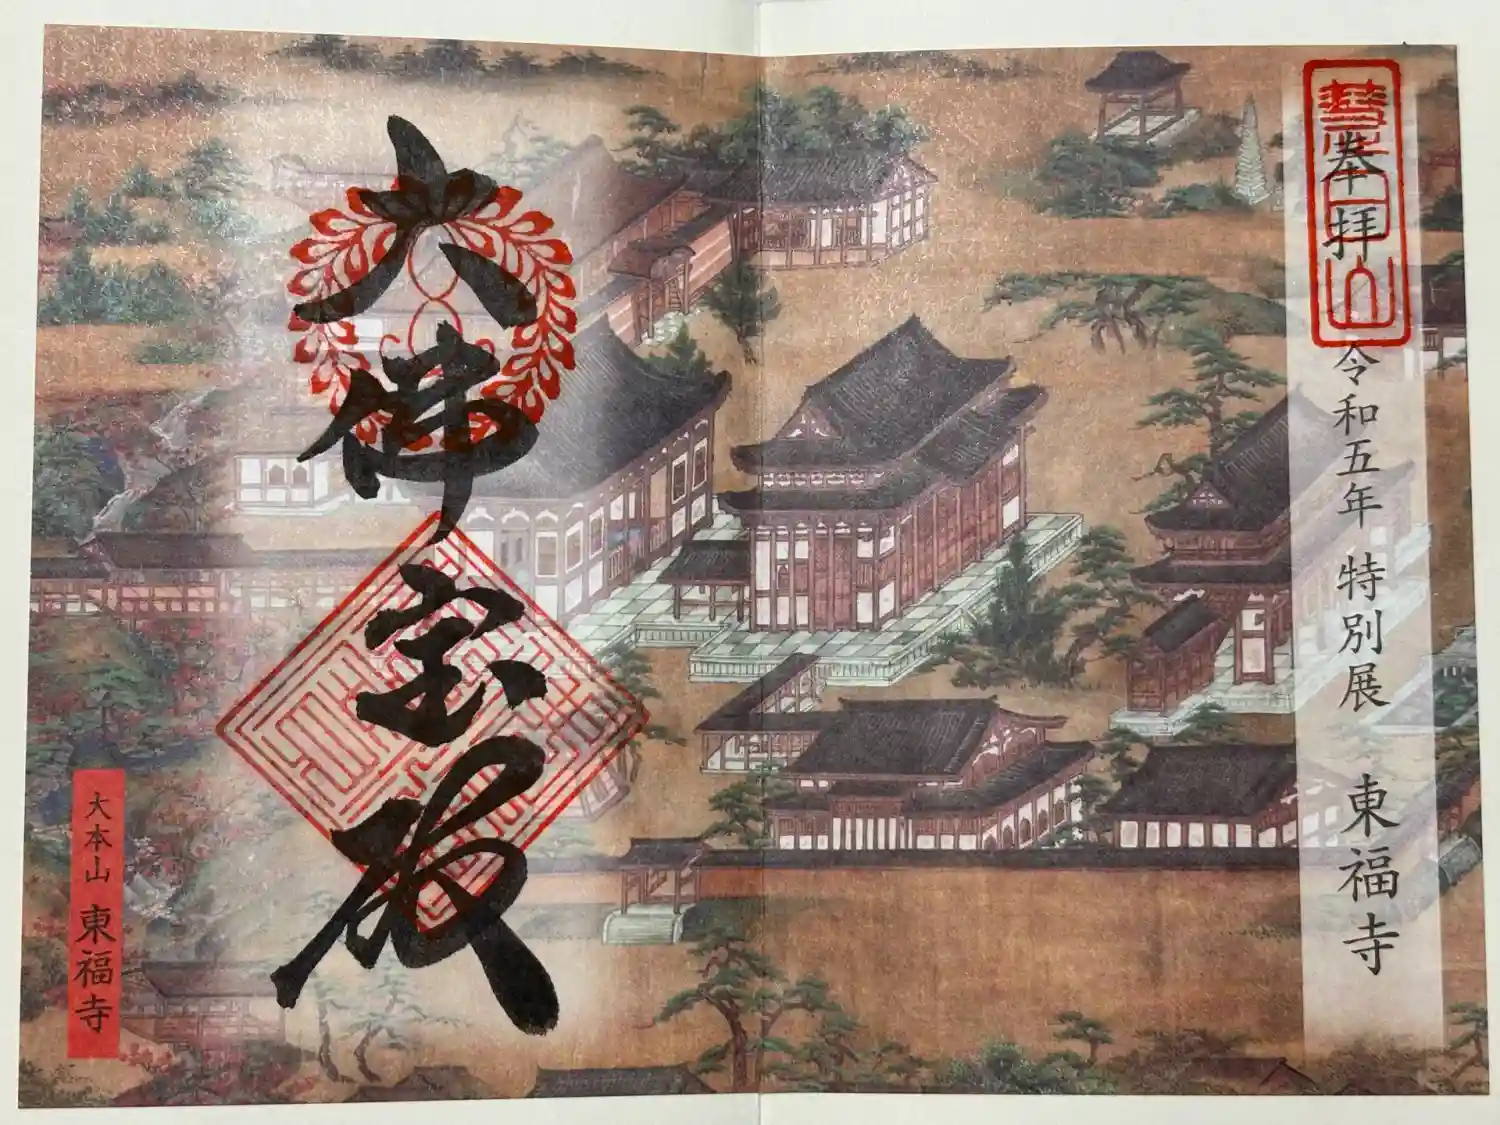 奉拝
令和五年 特別展 東福寺
大佛宝殿
大本山 東福寺